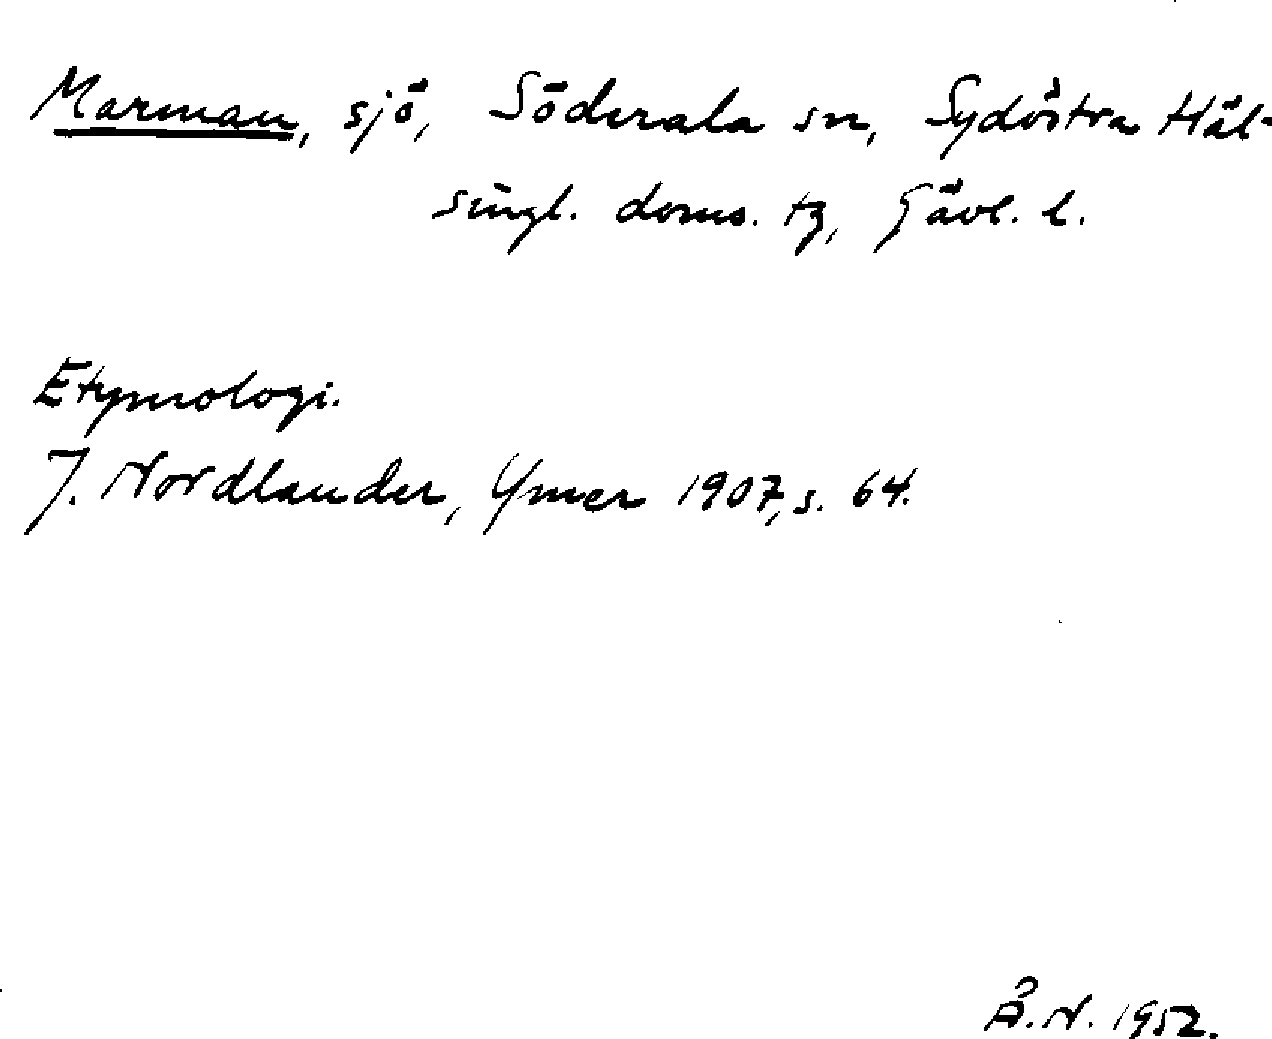 Marman, sjö, Söderala sn, Sydöstra Häl-
singl. doms. tg, Gävl. l.
Etymologi.
J. Nordlander, Ymer 1907, s. 64.
Å.N. 1952.